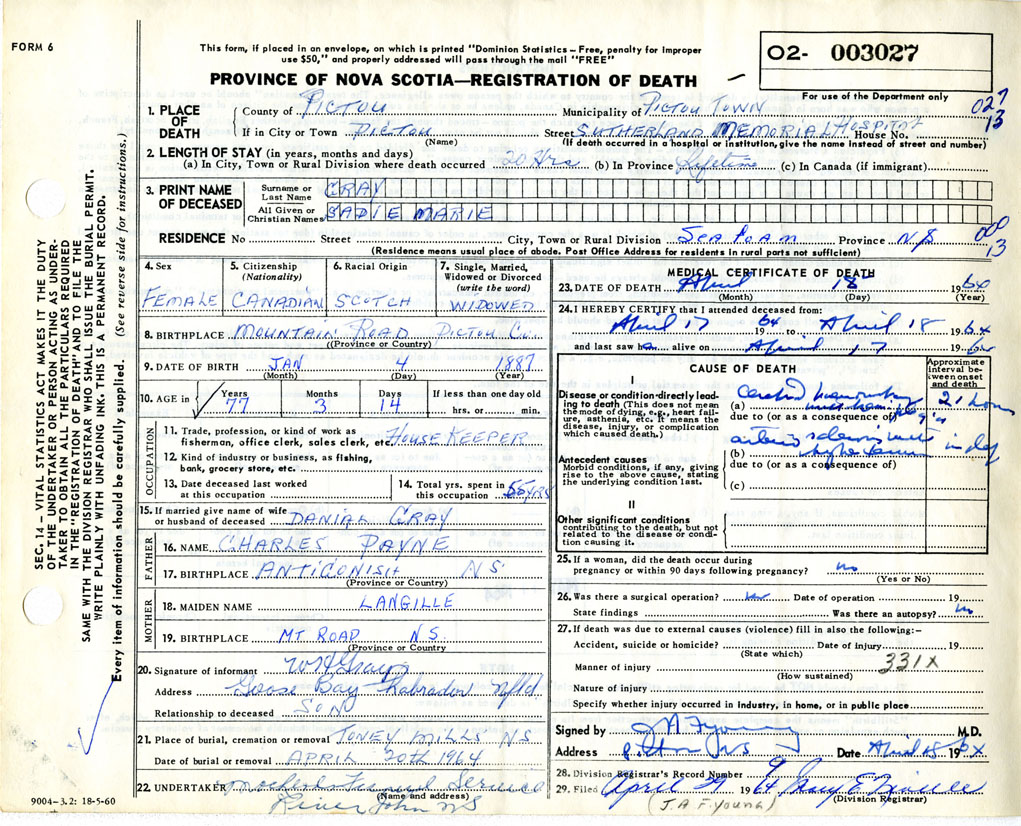 FORM 6
This form, if placed in an envelope, on which is printed "Dominion Statistics – Free, penalty for improper
use $50," and properly addressed will pass through the mail "FREE"
PROVINCE OF NOVA SCOTIA—REGISTRATION OF DEATH
02- 003027
For use of the Department only
027
13
1. PLACE OF DEATH
County of PICTOU
Municipality of PICTOU TOWN
If in City or Town PICTOU
(Name)
Street SUTHERLAND MEMORIAL HOSPITAL House No.
(If death occurred in a hospital or institution, give the name instead of street and number)
2. LENGTH OF STAY (in years, months and days)
(a) In City, Town or Rural Division where death occurred 20 Hrs (b) In Province Lifetime (c) In Canada (if immigrant)
3. PRINT NAME OF DECEASED
Surname or Last Name GRAY
All Given or Christian Names SADIE MARIE
RESIDENCE No Street City, Town or Rural Division Seafoam Province NS
000
13
(Residence means usual place of abode. Post Office Address for residents in rural parts not sufficient)
4. Sex
FEMALE
5. Citizenship
(Nationality)
CANADIAN
6. Racial Origin
SCOTCH
7. Single, Married, Widowed or Divorced
(write the word)
WIDOWED
8. BIRTHPLACE MOUNTAIN ROAD PICTOU Co.
(Province or Country)
9. DATE OF BIRTH JAN 4 1887
(Month) (Day) (Year)
10. AGE in
Years Months Days If less than one day old
77 3 14 hrs. or min.
OCCUPATION
11. Trade, profession, or kind of work as
fisherman, office clerk, sales clerk, etc. HOUSE KEEPER
12. Kind of industry or business, as fishing,
bank, grocery store, etc.
13. Date deceased last worked
at this occupation
14. Total yrs. spent in
this occupation 55 yrs
15. If married give name of wife
or husband of deceased DANIAL GRAY
FATHER
16. NAME CHARLES PAYNE
17. BIRTHPLACE ANTIGONISH NS
(Province or Country)
MOTHER
18. MAIDEN NAME LANGILLE
19. BIRTHPLACE MT ROAD N.S.
(Province or Country
20. Signature of informant
Address Goose Bay Labrador Nfld
Relationship to deceased SON
21. Place of burial, cremation or removal TONEY MILLS NS
Date of burial or removal APRIL 20th 1964
22. UNDERTAKER Service
(Name and address)
River John NS
9004–3.2: 18-5-60
SEC. 14 – VITAL STATISTICS ACT MAKES IT THE DUTY
OF THE UNDERTAKER OR PERSON ACTING AS UNDER-
TAKER TO OBTAIN ALL THE PARTICULARS REQUIRED
IN THE "REGISTRATION OF DEATH" AND TO FILE THE
SAME WITH THE DIVISION REGISTRAR WHO SHALL ISSUE THE BURIAL PERMIT.
WRITE PLAINLY WITH UNFADING INK. THIS IS A PERMANENT RECORD.
Every item of information should be carefully supplied. (See reverse side for instructions.)
MEDICAL CERTIFICATE OF DEATH
23. DATE OF DEATH April 18 1964
(Month) (Day) (Year)
24. I HEREBY CERTIFY that I attended deceased from
April 17 1964 to April 18 1964
and last saw h alive on April 17 1964
CAUSE OF DEATH
Approximate interval between onset and death
I
Disease or condition directly leading to death (This does not mean the mode of dying, e.g., heart failure, asthenia, etc. It means the disease, injury, or complication which caused death.)
(a) Cerebral hemorrhage with hemiplegia 21 hours
due to (or as a consequence of)
Antecedent causes
Morbid conditions, if any, giving rise to the above cause, stating the underlying condition last.
(b) arterio sclerosis with indef
due to (or as a consequence of)
(c)
II
Other significant conditions
contributing to the death, but not related to the disease or condition causing it.
25. If a woman, did the death occur during
pregnancy or within 90 days following pregnancy? no
(Yes or No)
26. Was there a surgical operation? no Date of operation 19
State findings Was there an autopsy? no
27. If death was due to external causes (violence) fill in also the following:–
Accident, suicide or homicide? Date of injury 19
(State which)
Manner of injury 331X
(How sustained)
Nature of injury
Specify whether injury occurred in industry, in home, or in public place
Signed by J A F Young M.D.
Address Pictou NS Date April 18 1964
28. Division Registrar's Record Number 9
29. Filed April 29 1964 Mary E
(J.A F. YOUNG) (Division Registrar)